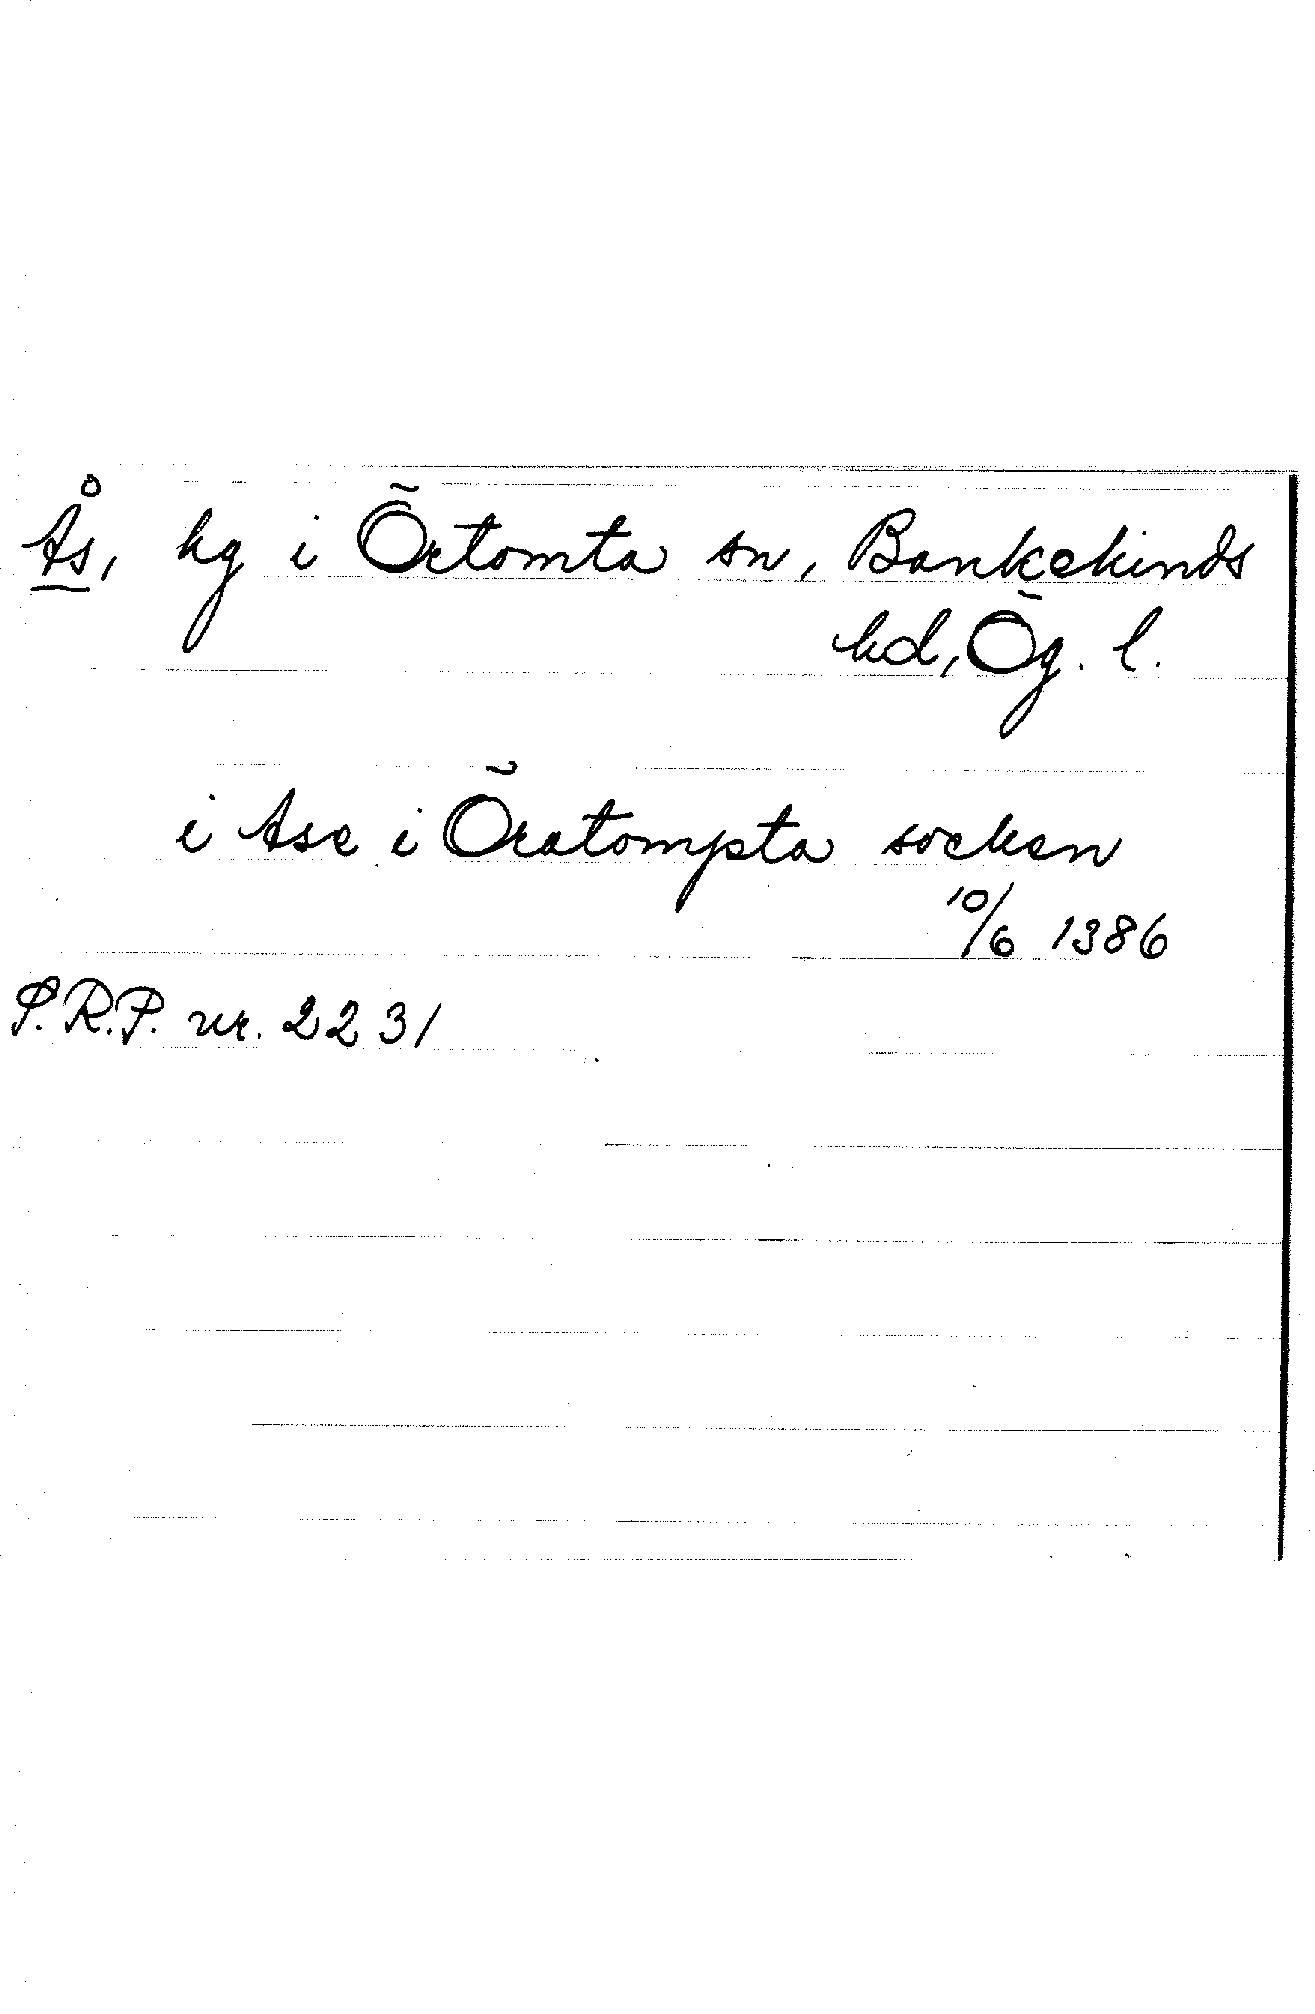 Ås, hg i Örtomta sn, Bankekinds
hd, Ög. l.
i Ase i Öratompta socken
10/6 1386
S.R.P. nr. 2231